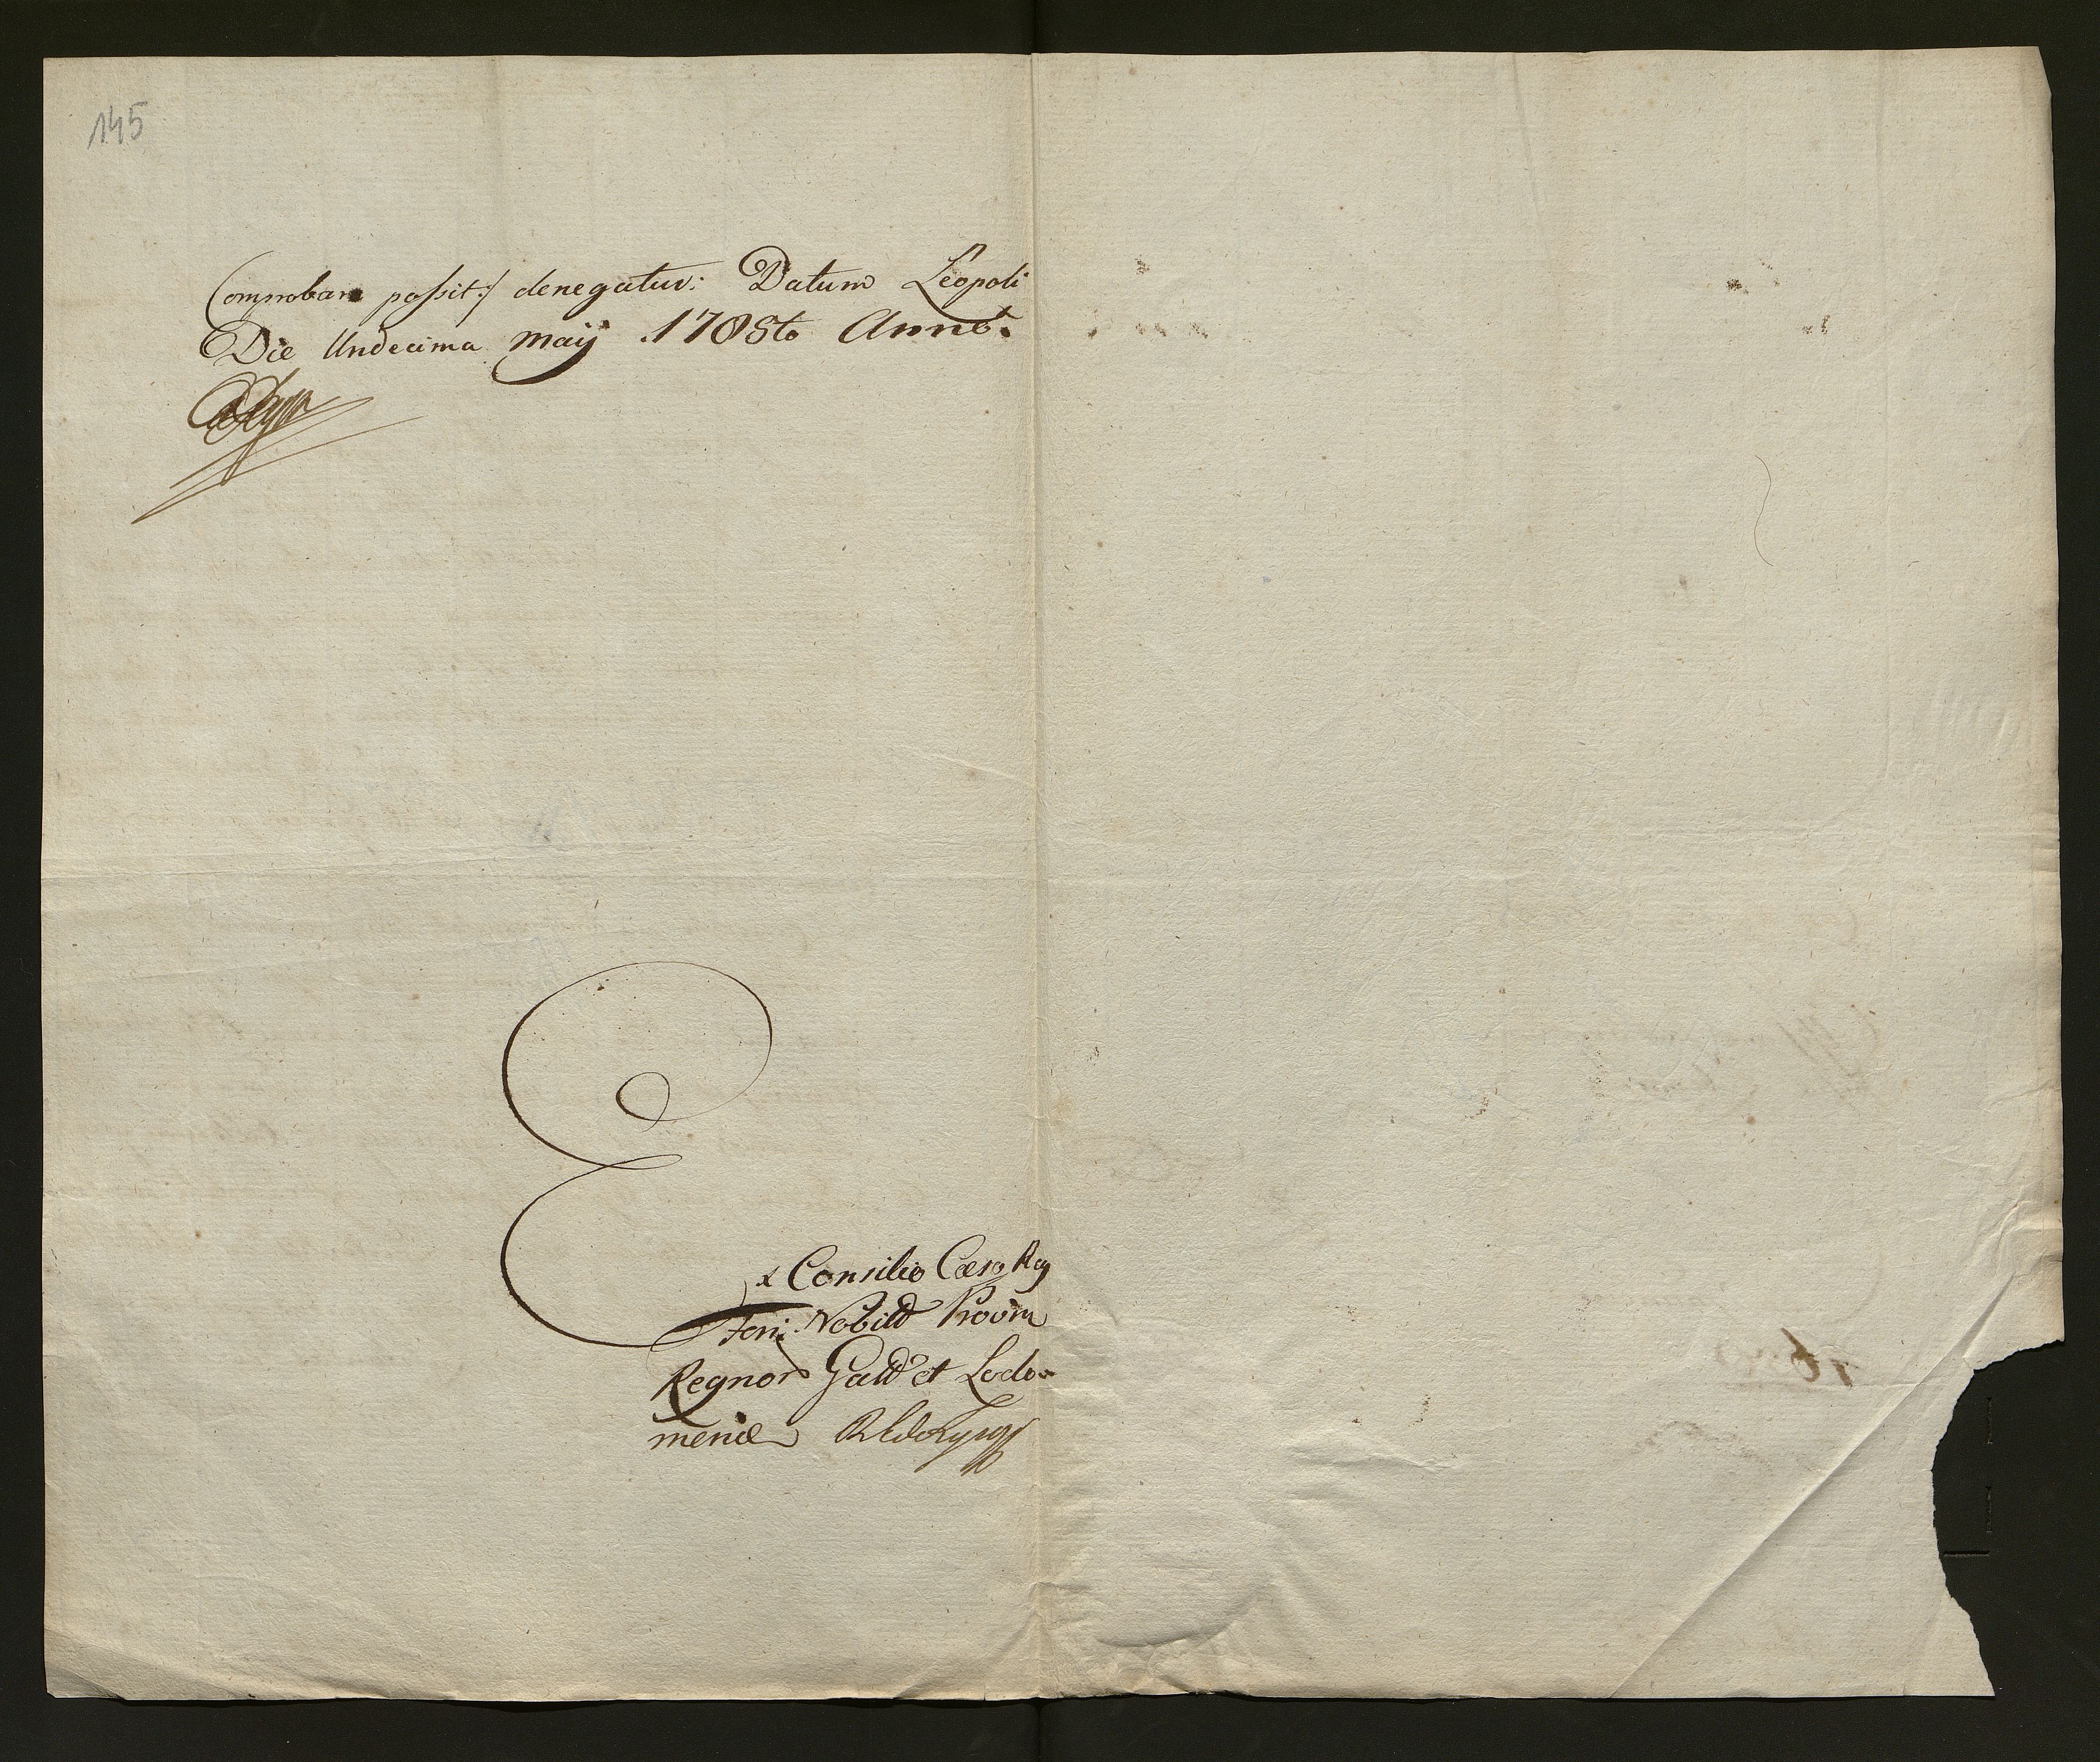 145
Comprobare possit :/ denegatur. Datum Leopoli
Die Undecima maij 1785to Anno.
Ex Consilio Cæso Reg
Fori Nobild Provin
Regnor Galld et Lodo-
meriæ